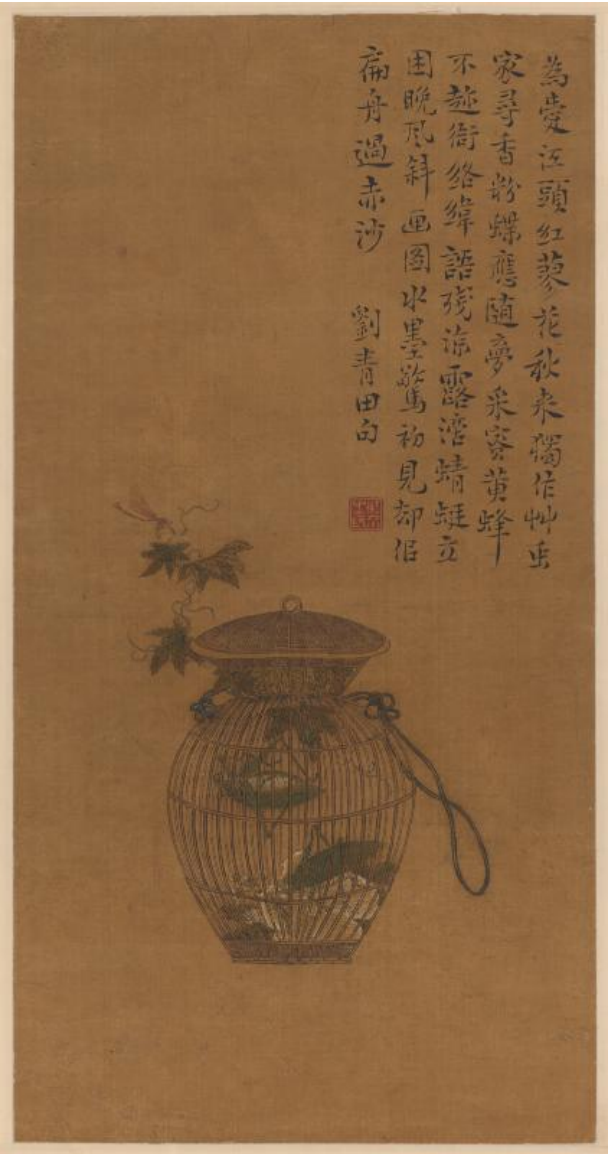 為愛江頭紅蓼花秋来獨作艸虫
家尋香粉蝶應随夢采蜜黄蜂
不趂衙絡緯語残涼露滴蜻蜓立
困晚风斜画图水墨驚初見却佀
扁舟過赤沙
劉青田句